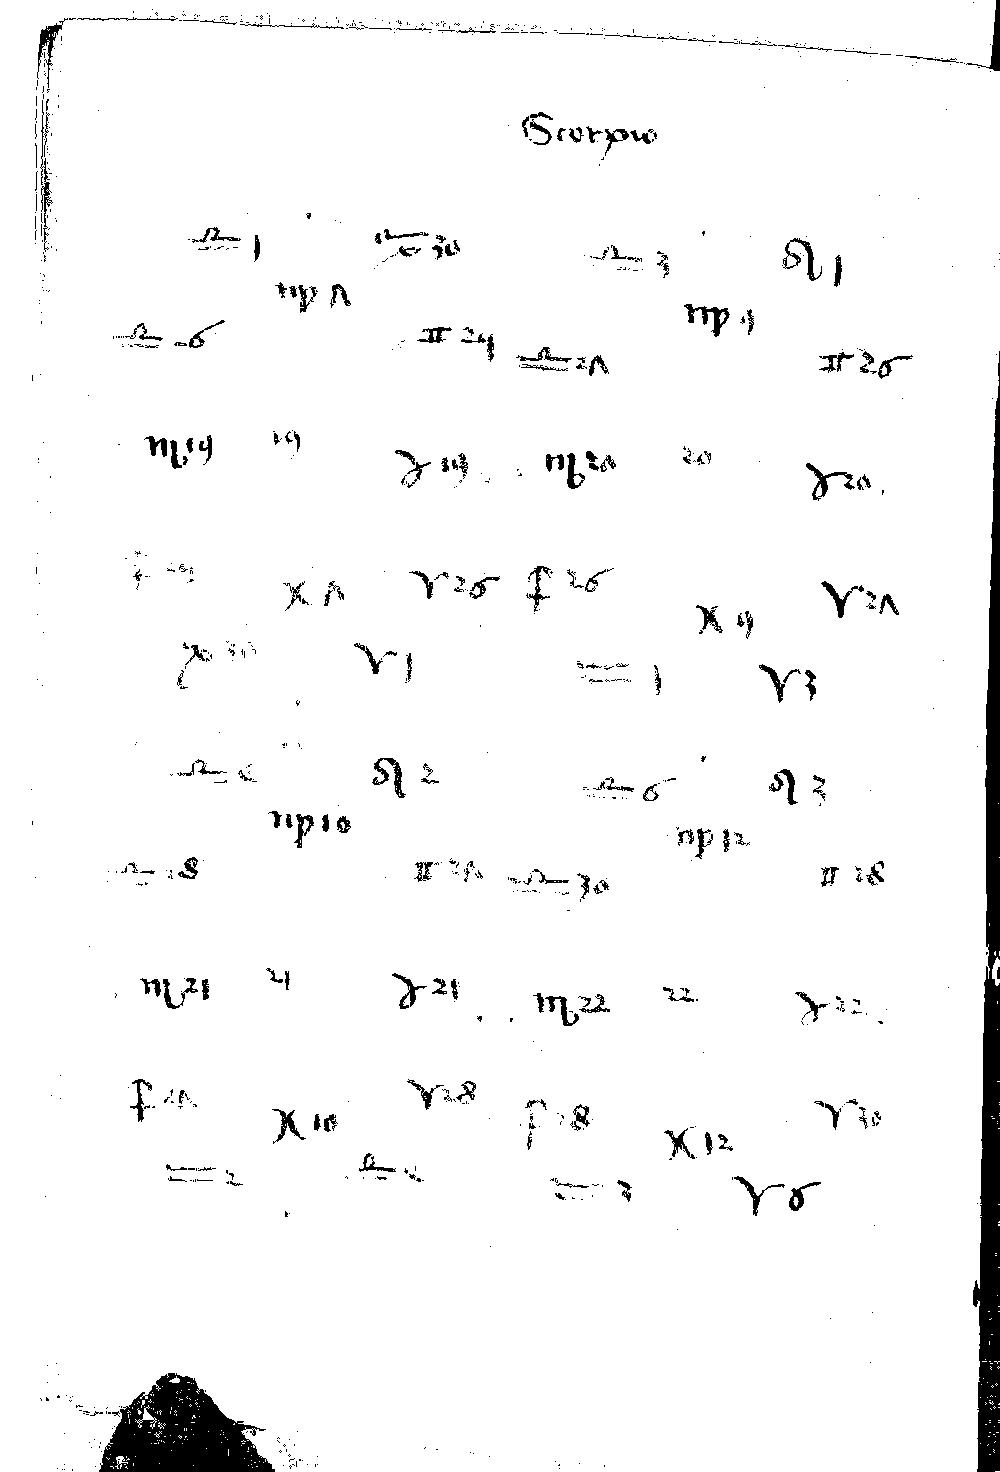 Scorpio
♎ 1 30 ♎ 3 ♌ 1
♍ 7 ♍ 9
♎ 6 ♊ 24 ♎ 27 ♊ 26
♏ 19 19 ♉ 19 ♏ 20 20 ♉ 20
♓ 7 ♈ 26 ♐ 26 ♓ 9 ♈ 27
♑ 30 ♈ 1 ♒ 1 ♈ 3
♎ ♌ 2 ♎ 6 ♌ 3
♍ 10 ♍ 12
♎ 28 ♊ 27 ♎ 30 ♊ 28
♏ 21 21 ♉ 21 ♏ 22 22 ♉ 22
♐ 27 ♓ 10 ♈ 28 ♐ 28 ♓ 12 ♈ 30
♒ 2 ♎ ♒ 3 ♈ 6